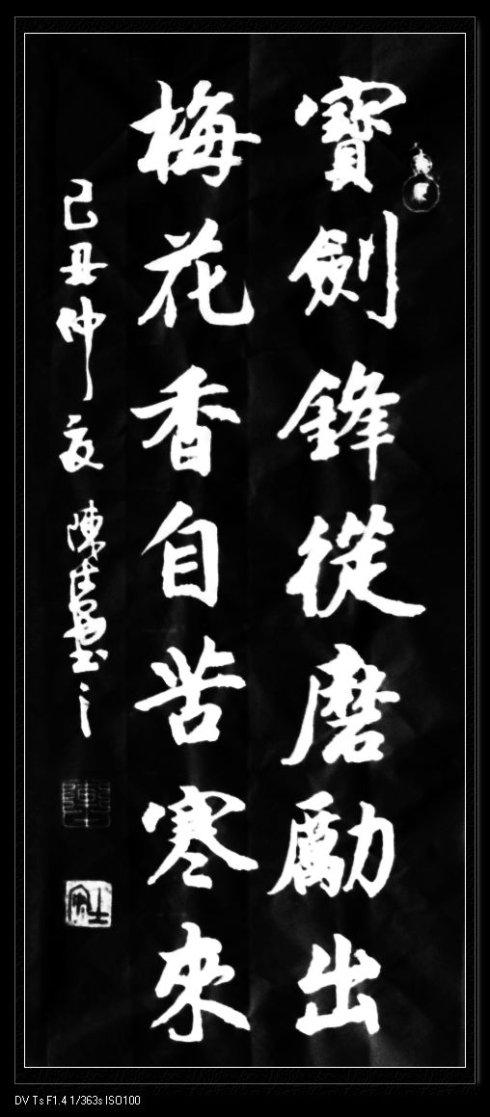 寶劍鋒從磨勵出
梅花香自苦寒來
己丑仲夏 陳
書
DV Ts F1.4 1/363s ISO100